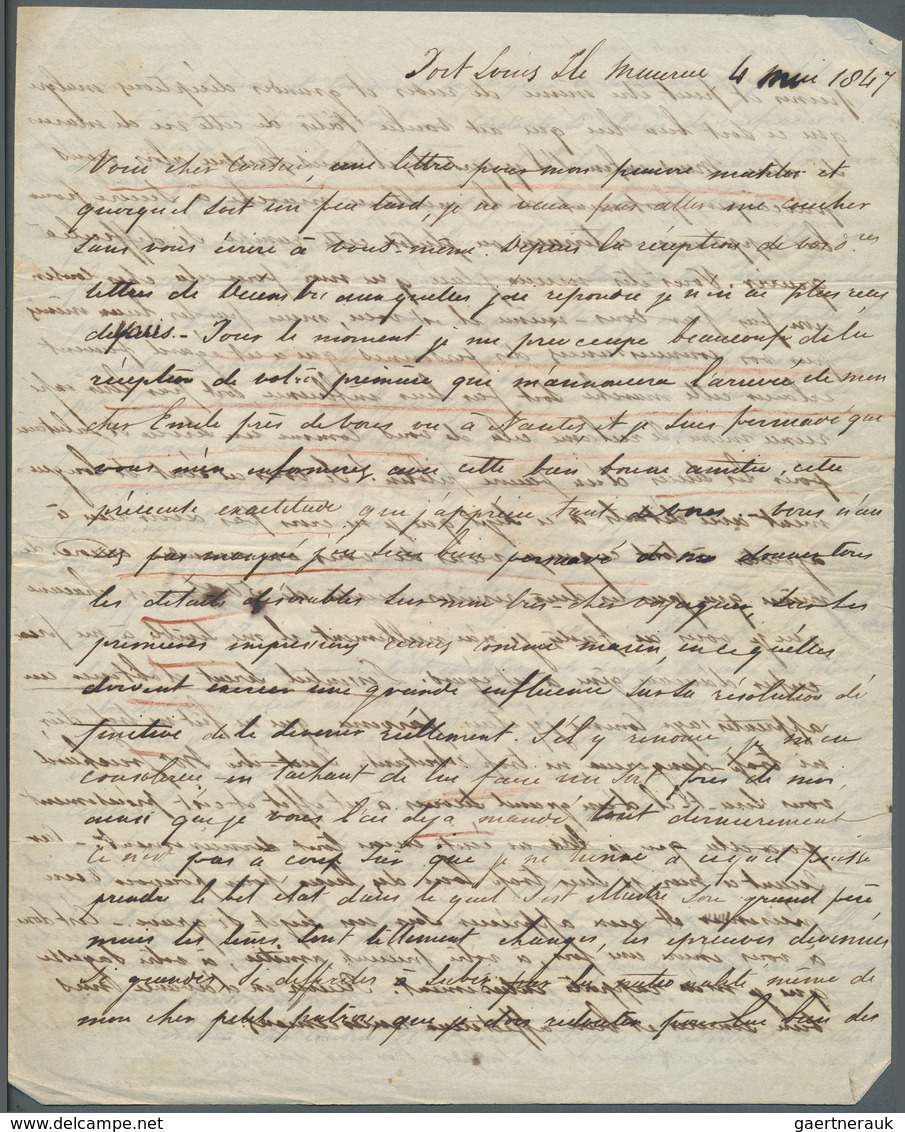 Port Louis Ile Maurice 4 mai 1847
Voici cher Cousin, une lettre pour mon pauvre matelot et
quoiqu'il soit un peu tard, je ne veux pas aller me coucher
sans vous écrire à vous-même. Depuis la réception de vos
lettres de Décembre auxquelles j'ai répondu je n'en ai plus reçu
depuis. - Pour le moment je me préoccupe beaucoup de la
réception de votre première qui m'annoncera l'arrivée de mon
cher Emile près de vous ou à Nantes et je suis persuadé que
vous m'en informerez avec cette bien bonne amitié, cette
précieuse exactitude que j'apprécie tant de vous. vous n'au
rez pas manqué j'en suis bien persuadé de me donner tous
les détails désirables sur mon très-cher voyageur, sur ses
premières impressions comme marin, en ce qu'elles
doivent exercer une grande influence sur sa résolution dé
finitive de le devenir réellement. S'il y renonce, je m'en
consolerai en tachant de lui faire un sort près de moi
ainsi que je vous l'ai déjà mandé tout dernièrement
ce n'est pas à coup sûr que je ne tienne à ce qu'il puisse
prendre le bel état dans lequel s'est illustré son grand père
mais les tems sont tellement changés, les épreuves devenues
si grandes, si difficiles à subir par la nationalité même de
mon cher petit que je dois redouter pour lui bien des
gaertnerauk